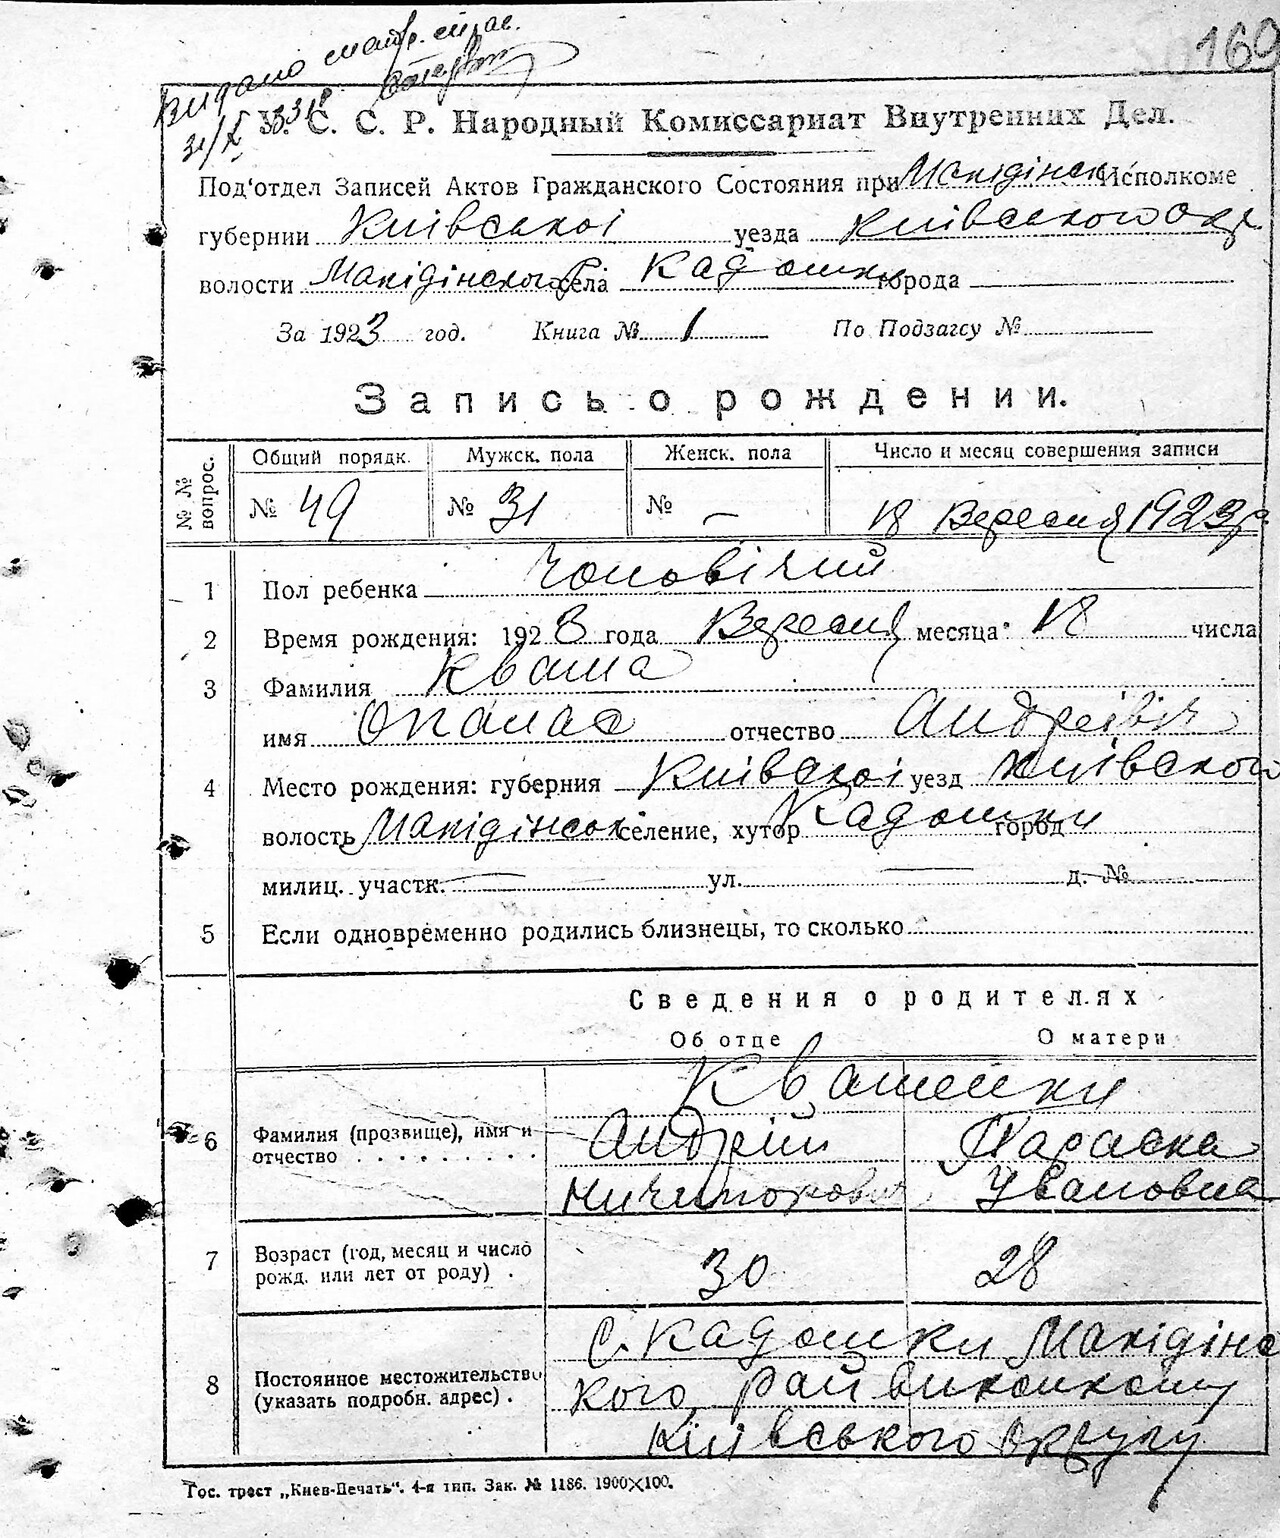 160
Видано матр.
31/X 33 р.
У. С. С. Р. Народный Комиссариат Внутренних Дел.
Под'отдел Записей Актов Гражданского Состояния при Макідінск Исполкоме
губернии Київської уезда Київського Окр.
волости Макідінского Р. села Кадомки города
За 1923 год. Книга № 1 По Подзагсу №
Запись о рождении.
№ № вопрос. Общий порядк. Мужск. пола Женск. пола Число и месяц совершения записи
№ 49 № 31 № — 18 Вересня 1923 р.
1 Пол ребенка Чоловічий
2 Время рождения: 1923 года Вересня месяца 18 числа
3 Фамилия Кваша
имя Опанас отчество Андреівіч
4 Место рождения: губерния Київскоі уезд Київского
волость Макідінськ селение, хутор Кадомки город
милиц. участк. — ул. — д. №
5 Если одновременно родились близнецы, то сколько
Сведения о родителях
Об отце О матери
Квашенки
6 Фамилия (прозвище), имя и отчество Андрій Параска
Ничипорович Ивановна
7 Возраст (год, месяц и число рожд. или лет от роду) 30 28
8 Постоянное местожительство (указать подробн. адрес) С. Кадомки Макідінс
кого Райвиконкому
Київського Округу
Гос. трест „Киев-Печать“. 4-я тип. Зак. № 1186. 1900×100.